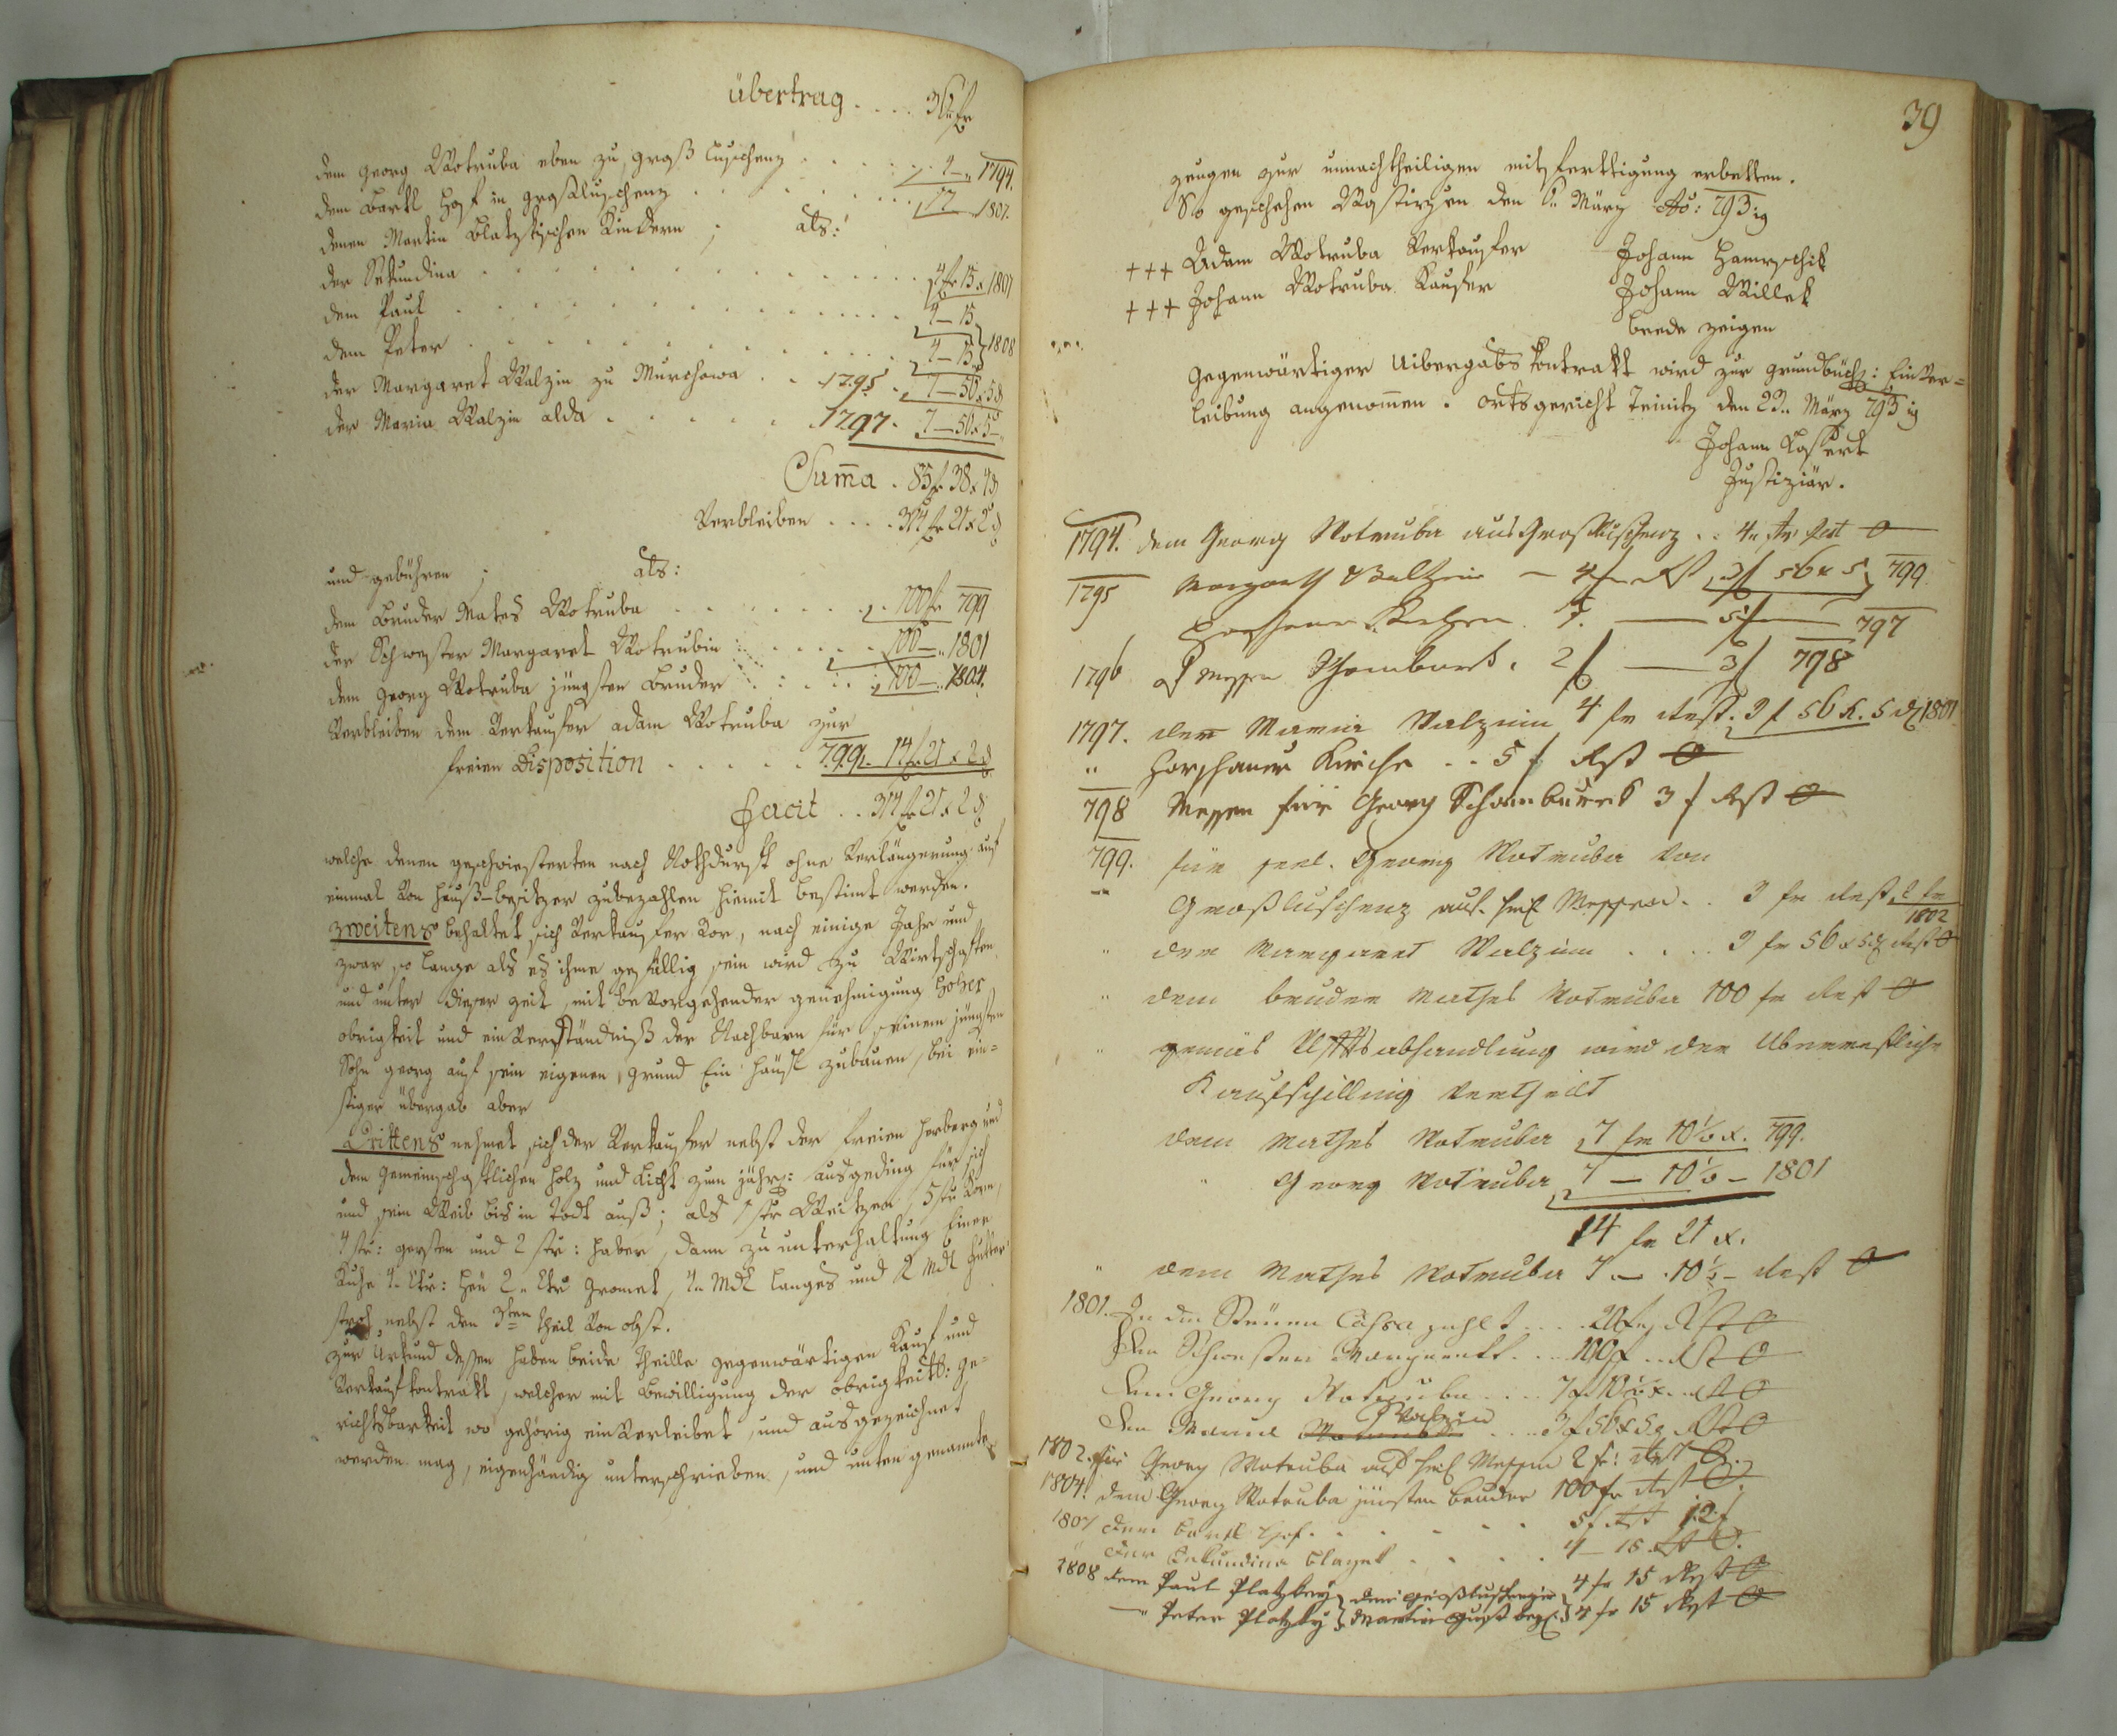 übertrag . . . . 36 fr
dem Georg Wotruba eben zu Groß Luschenz . . . . . 4 — „ 1794.
dem Bartl Hof in Großluschenz . . . . . 17 — 1807.
denen Martin Blatzkischen Kindern ; als:
der Sekundina . . . . . 4 fr 15 x 1807
dem Paul . . . . . 4 — 15
dem Peter . . . . . 4 — 15 } 1808
der Margaret Walzin zu Murchowa . . 1795 . 7 — 56 x 5 d
der Maria Walzin alda . . . . . 1797 . 7 — 56 x 5 —
Summa . 85 fr 38 x 4 d
Verbleiben . . . . 314 fr 21 x 2 d
und gebühren ; als:
dem Bruder Mates Wotruba . . . . . 100 fr 799
der Schwester Margaret Wotrubin . . . . . 100 — „ 1801
dem Georg Wotruba jüngsten Bruder . . . . 100 — „ 1804.
Verbleiben dem Verkaufer Adam Wotruba zur
freien Disposition . . . . . 799. 14 fr 21 x 2 d
Facit . . 314 fr 21 x 2 d
welche denen geschwiesterten nach Nothdurft ohne Verlängerung auf
einmal von Hauß-besitzer zubezahlen hiemit bestimt werden.
Zweitens behaltet sich Verkaufer vor, nach einige Jahr und
zwar so lange als es ihme gefällig sein wird zu Wirtschaften
und unter dieser zeit, mit bevorgehender genehmigung hoher
obrigkeit und einverständniß der Nachbarn für seinem jüngsten
Sohn georg auf sein eigenen grund Ein Häusl zubauen, bei ein=
stiger übergab aber
Drittens nehmet sich der Verkaufer nebst der freien herberg und
dem gemeinschaftlichen holz und Licht zum jährl: ausgeding für sich
und sein Weib bis in Todt auß; als 1 str Weitzen, 5 str Korn,
4 str: gersten und 2 str: haber, dann zu unterhaltung Einer
Kuhe 4 „ Ctr: heu 2 „ Ctr Gromet, 4 „ Mdl langes und 2 Mdl futter
stroh nebst den 3ten theil von obst.
zur Urkund dessen haben beide Theille gegenwärtigen Kauf und
Verkaufkontrakt, welcher mit bewilligung der obrigkeitl: ge=
richtsbarkeit wo gehörig einverleibet, und ausgezeichnet
werden mag, eigenhändig unterschrieben, und unten genannte
39
zeugen zur unnachtheiligen mitfertigung erbetten.
So geschehen Wostirzen den März Ao: 793ig
+++ Adam Wotruba Verkaufer Johann Hamrschik
+++ Johann Wotruba Kaufer Johann Millek
beede zeigen
Gegenwärtiger Uibergabs kontrakt wird zur grundbüchl: Einver=
leibung angenommen. Ortsgericht Teinitz den 23. März 793ig
Johann Lossert
Justiziär.
1794. dem Georg Wotruba aus Großluschenz . . 4 „ fr Rest 0
1795 Margareth Walzin — 4 fr Rst 3 f 56 x 5 799
5 f — 797
1796 Messen Schambureck . 2 f — 3 f 798
1797. der Maria Walzin 4 fr Rest . 3 f 56 k. 5 d 1801
„ Horschauer Kirche . . 5 f Rst 0
798 Messen für Georg Schambureck 3 f Rst 0
799. für seel. Georg Wotruba von
Großluschenz auf heil Messen . . 3 fr Rest 2 fr
1802
„ der Margaret Walzin . . . . 3 fr 56 x 5 d Rst 0
„ dem bruder Mathes Wotruba 100 fr Rest 0
„ gemäs abhandlung wird der
Kaufschilling vertheilt
dem Mathes Wotruba 7 fr 10½ x. 799.
„ Georg Wotruba 7 — 10½ — 1801
14 fr 21 x.
„ dem Mathes Wotruba 7 — 10½ — Rest 0
1801. In die Steuer Cassa zahlt . . . 20 fr Rst 0
der Schwester Margareth . . . 100 f . . Rst 0
dem Georg Wotruba . . . . 7 f 10½ x . Rst 0
der Maria Walzin . . . . 3 f 56 x 5 d Rst 0
1802. für Georg Wotruba auf heil Messen 2 fr: Rest 0.
1804. dem Georg Wotruba jünsten bruder 100 fr Rst 0.
1807 dem Bartl Hof . . . . . 5 f Rst 12 f
„ der Sekundina Blazek . . . . . 4 — 15 Rst 0.
1808 dem Paul Platzky } dem Großluschenzer } 4 fr 15 Rest 0
— „ Peter Platzky } Martin bez. } 4 fr 15 Rest 0